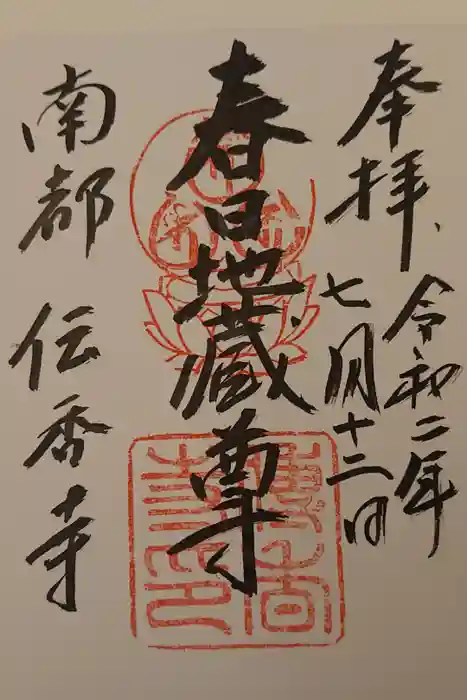 奉拝
令和二年
七月十二日
春日地蔵尊
南都 伝香寺
傳香寺印